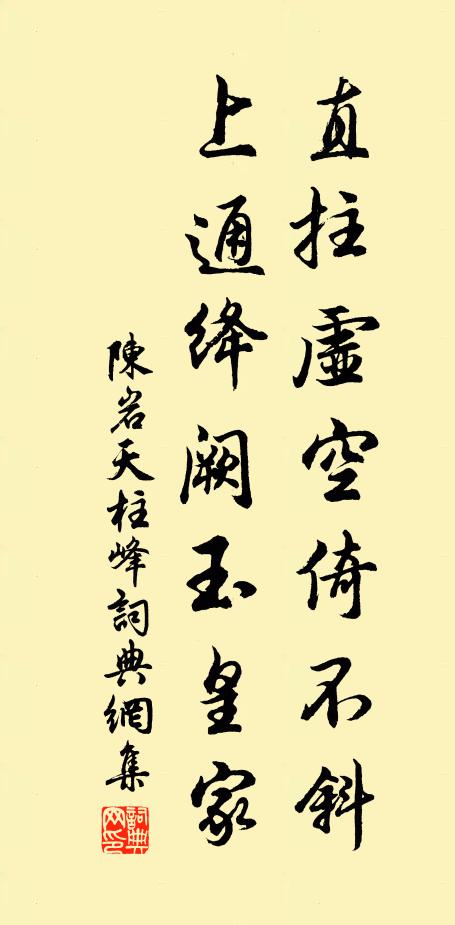 直拄虛空倚不斜
上通絳闕玉皇家
陳岩天柱峰詞典網集
詞典网印